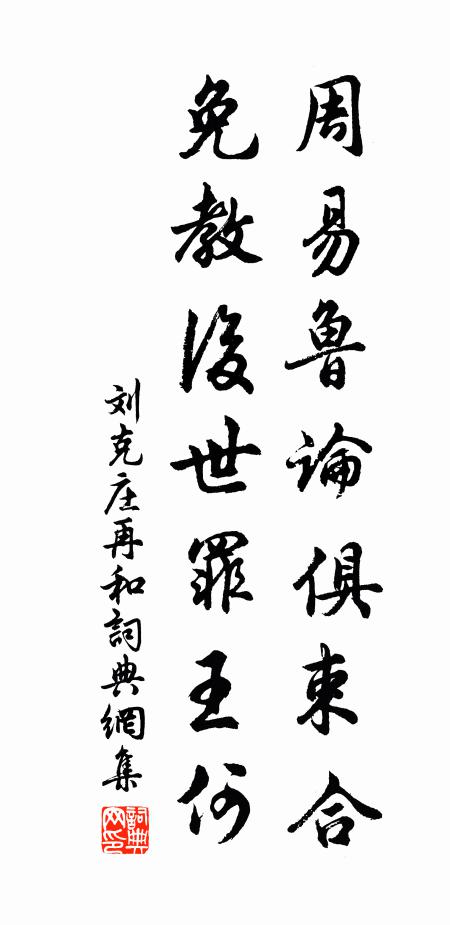 周易魯論俱束合
免教後世罪王何
刘克庄再和詞典網集
詞典网印